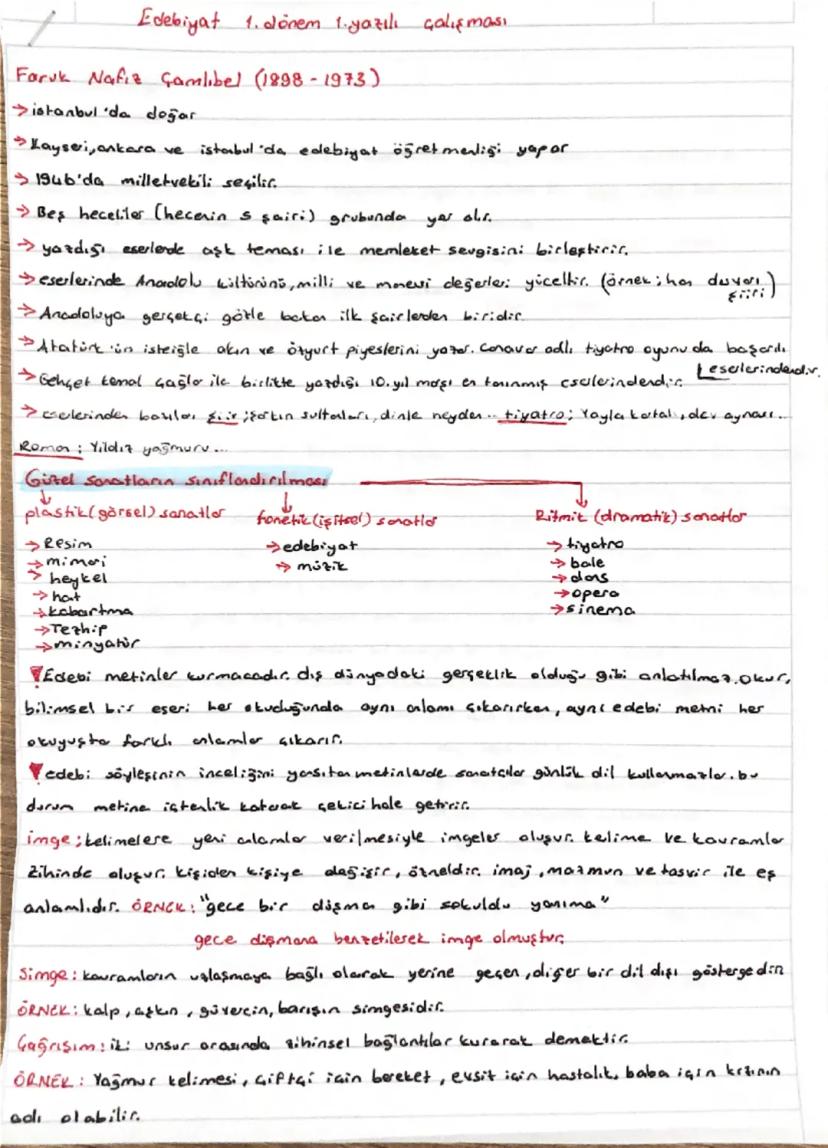 Edebiyat 1.dönem 1.yazılı çalışması
Faruk Nafiz Çamlıbel (1898 - 1973)
→ istanbul'da doğar
→ Kayseri, ankara ve istanbul'da edebiyat öğretmenliği yapar
→ 1946'da milletvekili seçilir.
→ Beş heceliler (hecenin 5 şairi) grubunda yer alır.
→ yazdığı eserlerde aşk teması ile memleket sevgisini birleştirir.
→ eserlerinde Anadolu kültürünü, milli ve manevi değerleri yüceltir. (örnek; han duvarı şiiri)
→ Anadoluya gerçekçi gözle bakan ilk şairlerden biridir.
→ Atatürk'ün isteiğle akın ve özyurt piyeslerini yazar. Canavar adlı tiyatro oyunu da başarılı eserlerindendir.
→ Behçet kemal Çağlar ile birlikte yazdığı 10.yıl marşı en tanınmış eserlerindendir.
→ eserlerinden bazıları şiir; şarkın sultanları, dinle neyden.. tiyatro; Yayla kartalı, dev aynası...
Roman; Yıldız yağmuru...
Güzel sanatların sınıflandırılması
plastik (görsel) sanatlar fonetik (işitsel) sanatlar Ritmik (dramatik) sanatlar
→ Resim → edebiyat → tiyatro
→ mimari → müzik → bale
→ heykel → dans
→ hat → opera
→ kabartma → sinema
→ Tezhip
→ minyatür
Edebi metinler kurmacadır. dış dünyadaki gerçeklik olduğu gibi anlatılmaz. okur,
bilimsel bir eseri her okuduğunda aynı anlamı çıkarırken, aynı edebi metni her
okuyuşta farklı anlamlar çıkarır.
edebi söyleşinin inceliğini yansıtan metinlerde sanatçılar günlük dil kullanmazlar. bu
durum metine içtenlik katarak çekici hale getirir.
imge; kelimelere yeni anlamlar verilmesiyle imgeler oluşur. kelime ve kavramlar
zihinde oluşur. kişiden kişiye değişir, özneldir. imaj, mazmun ve tasvir ile eş
anlamlıdır. ÖRNEK: "gece bir düşman gibi sokuldu yanıma"
gece düşmana benzetilerek imge olmuştur.
Simge: kavramların uzlaşmaya bağlı olarak yerine geçen, diğer bir dil dışı göstergedir.
ÖRNEK: kalp, aşkın, güvercin, barışın simgesidir.
Çağrışım: iki unsur arasında zihinsel bağlantılar kurarak demektir.
ÖRNEK: Yağmur kelimesi, çiftçi için bereket, evsiz için hastalık, baba için kızının
adı olabilir.